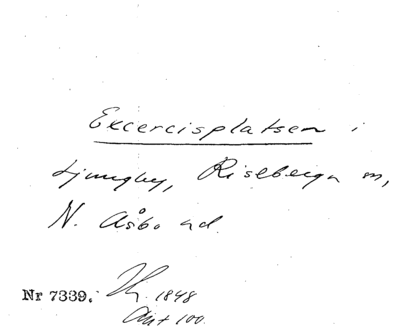 Excercisplatsen i
Ljungby, Riseberga m,
N. Åsbo hd.
Nr 7339. 1848
Ant 100.